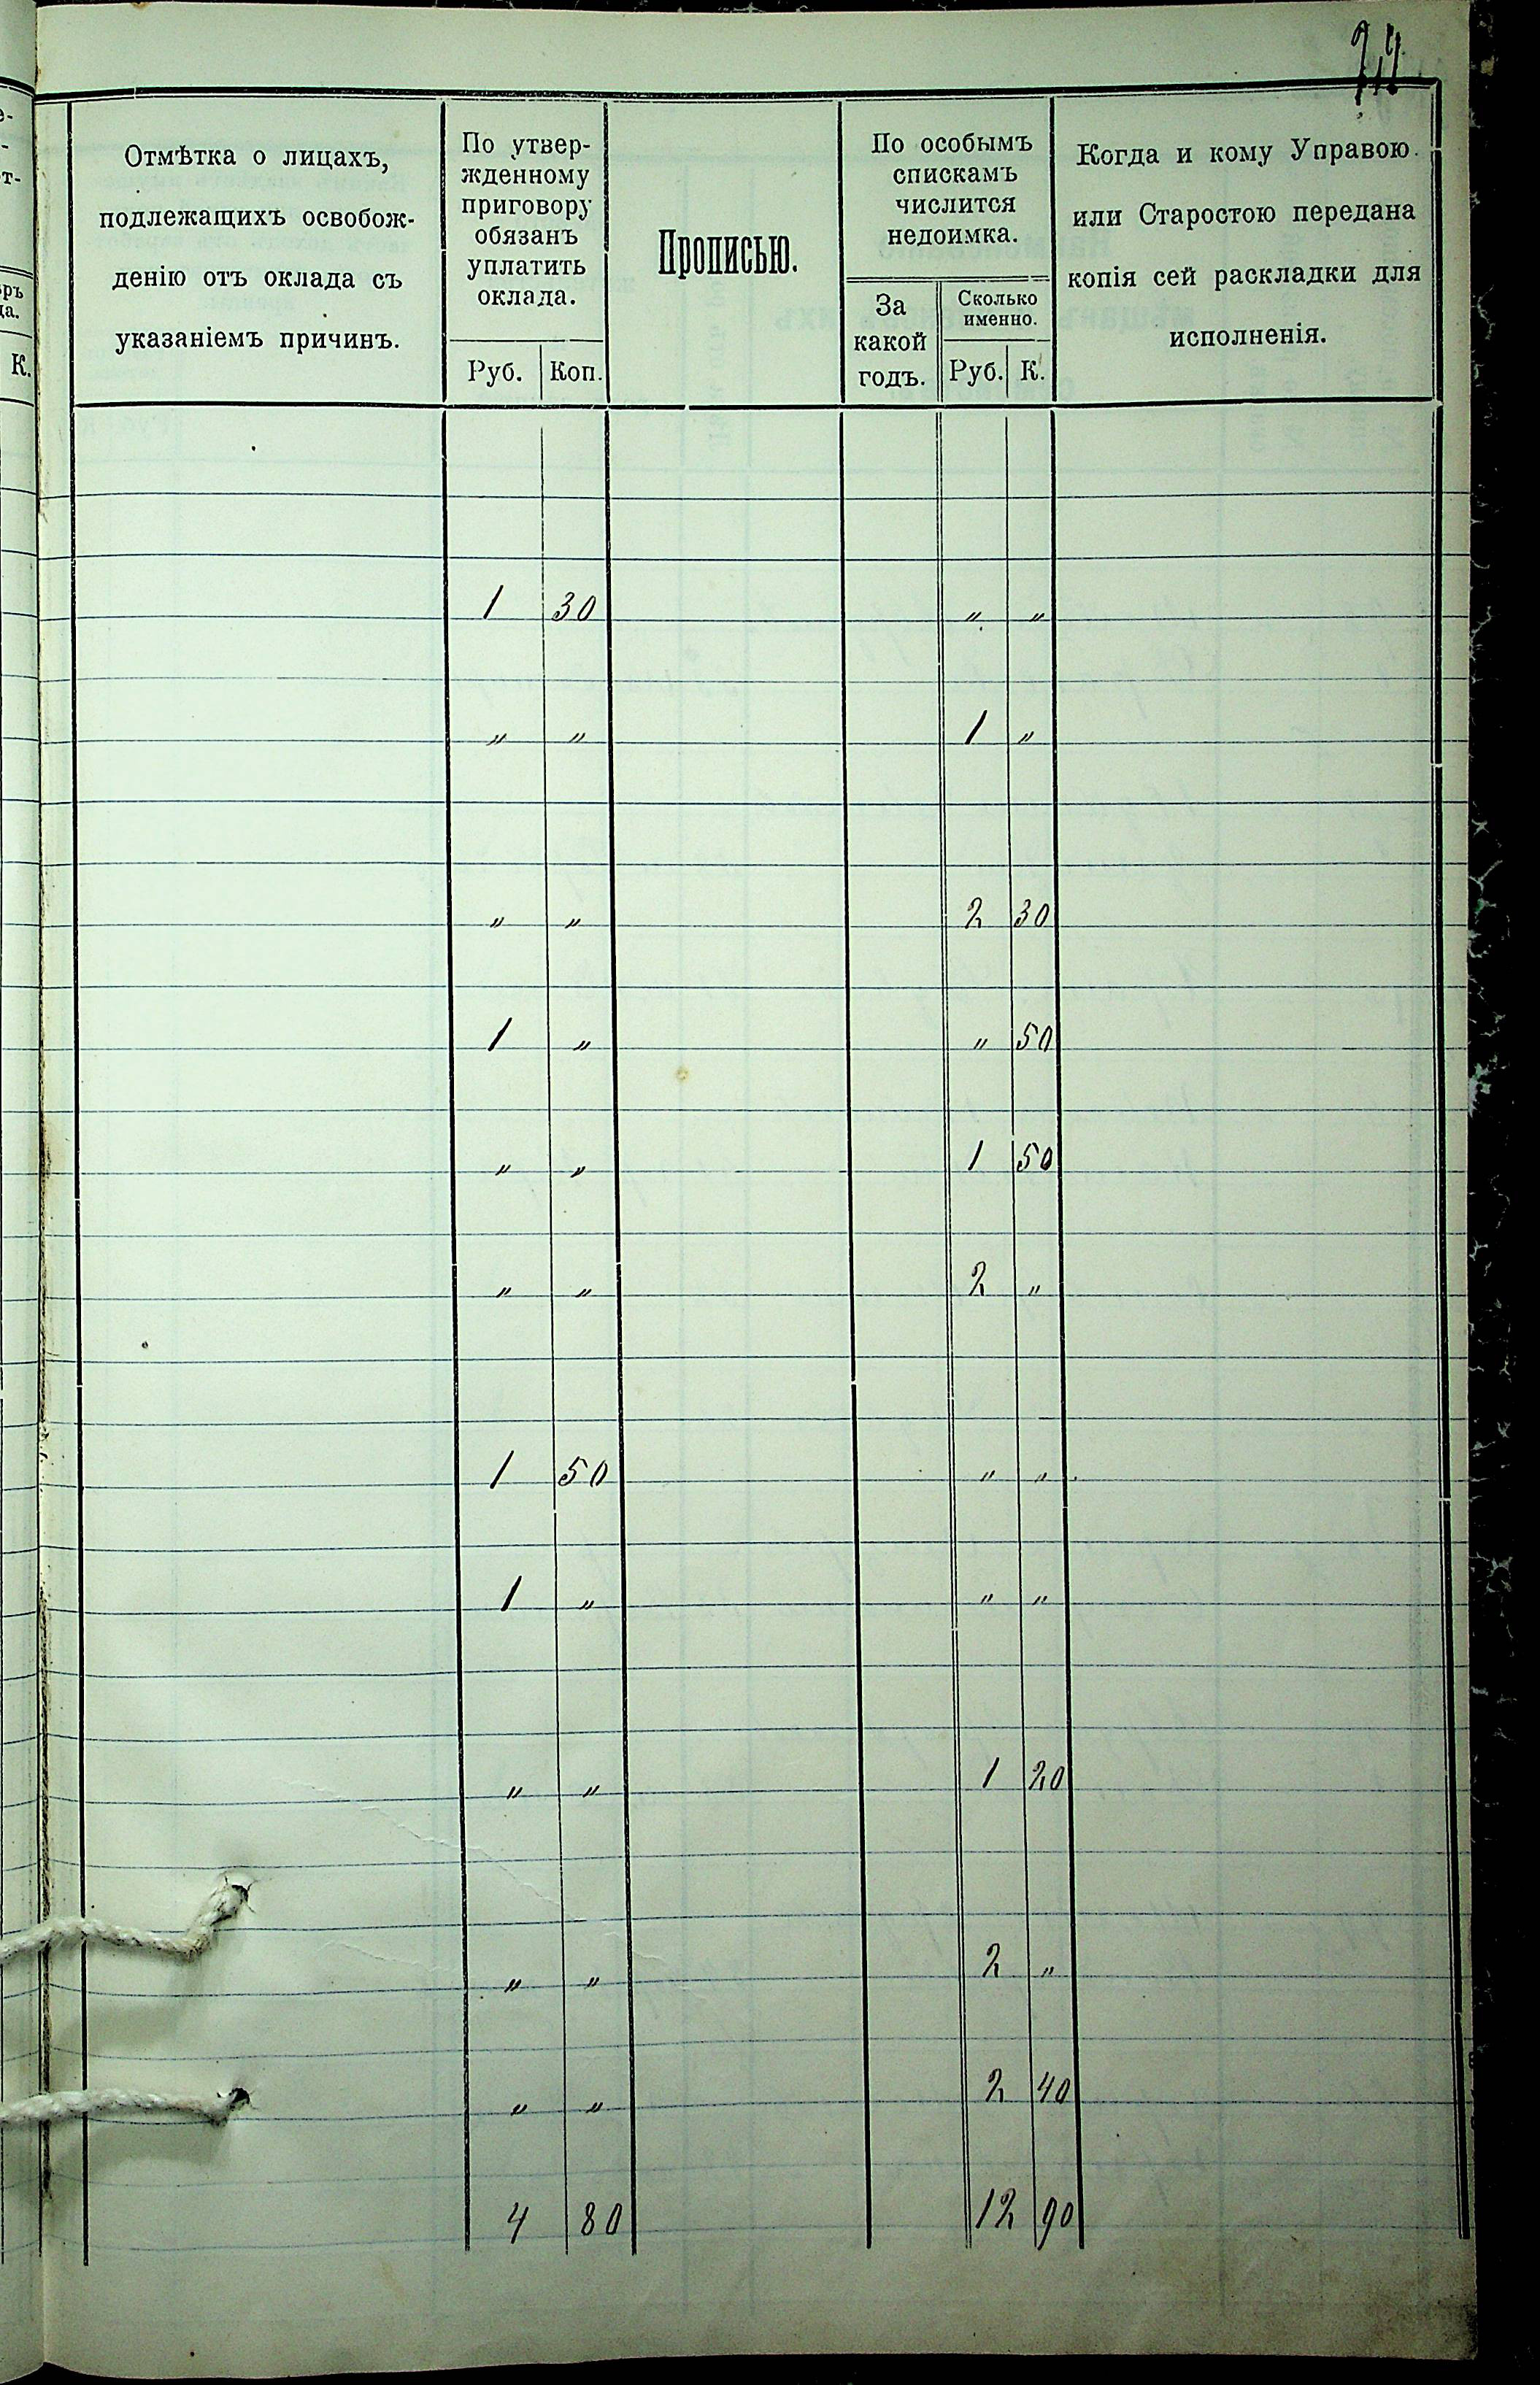 Отмѣтка о лицахъ,
подлежащихъ освобож-
денію отъ оклада съ
указаніемъ причинъ.
По утвер-
жденному
приговору
обязанъ
уплатить
оклада.
Руб. Коп.
Прописью.
По особымъ
спискамъ
числится
недоимка.
За
какой
годъ.
Сколько
именно.
Руб. К.
Когда и кому Управою
или Старостою передана
копія сей раскладки для
исполненія.
К.
1 30 „ „
„ „ 1 „
„ „ 2 30
1 „ „ 50
„ „ 1 50
„ „ 2 „
1 50 „ „
1 „ „ „
„ „ 1 20
„ „ 2 „
„ „ 2 40
4 80 12 90